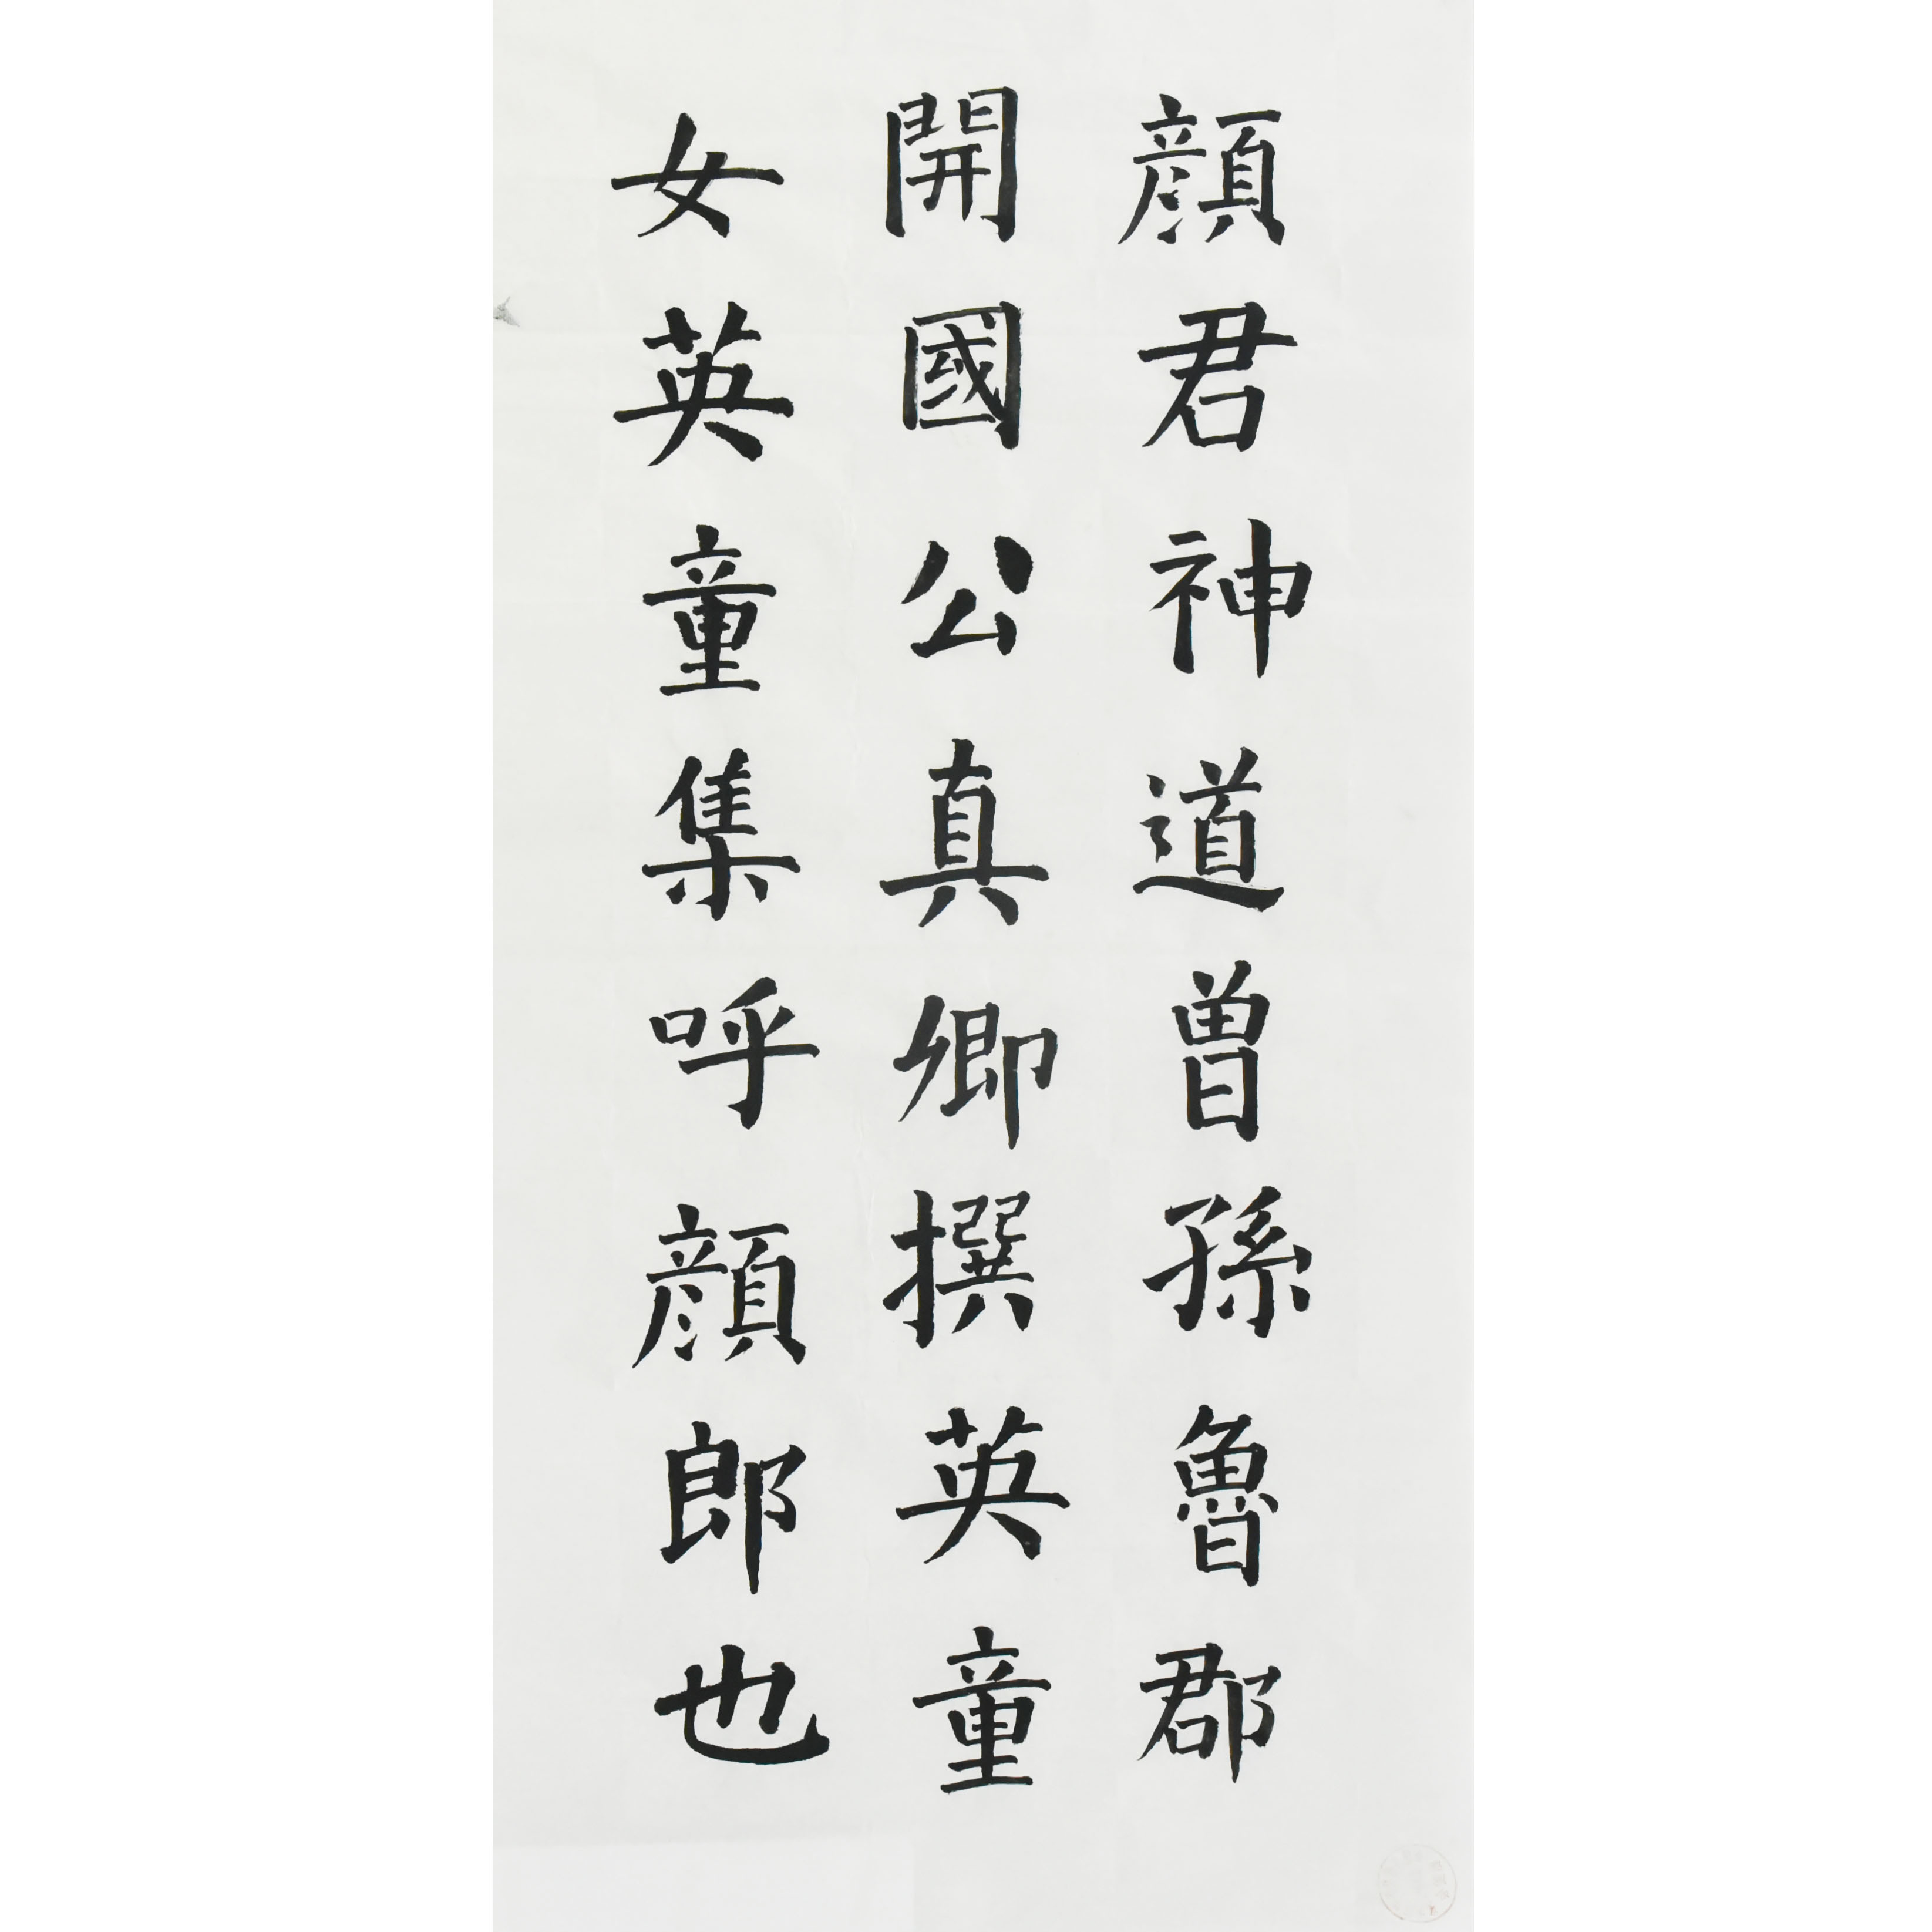 顏君神道曾孫魯郡
開國公真卿撰英童
女英童集呼顏郎也